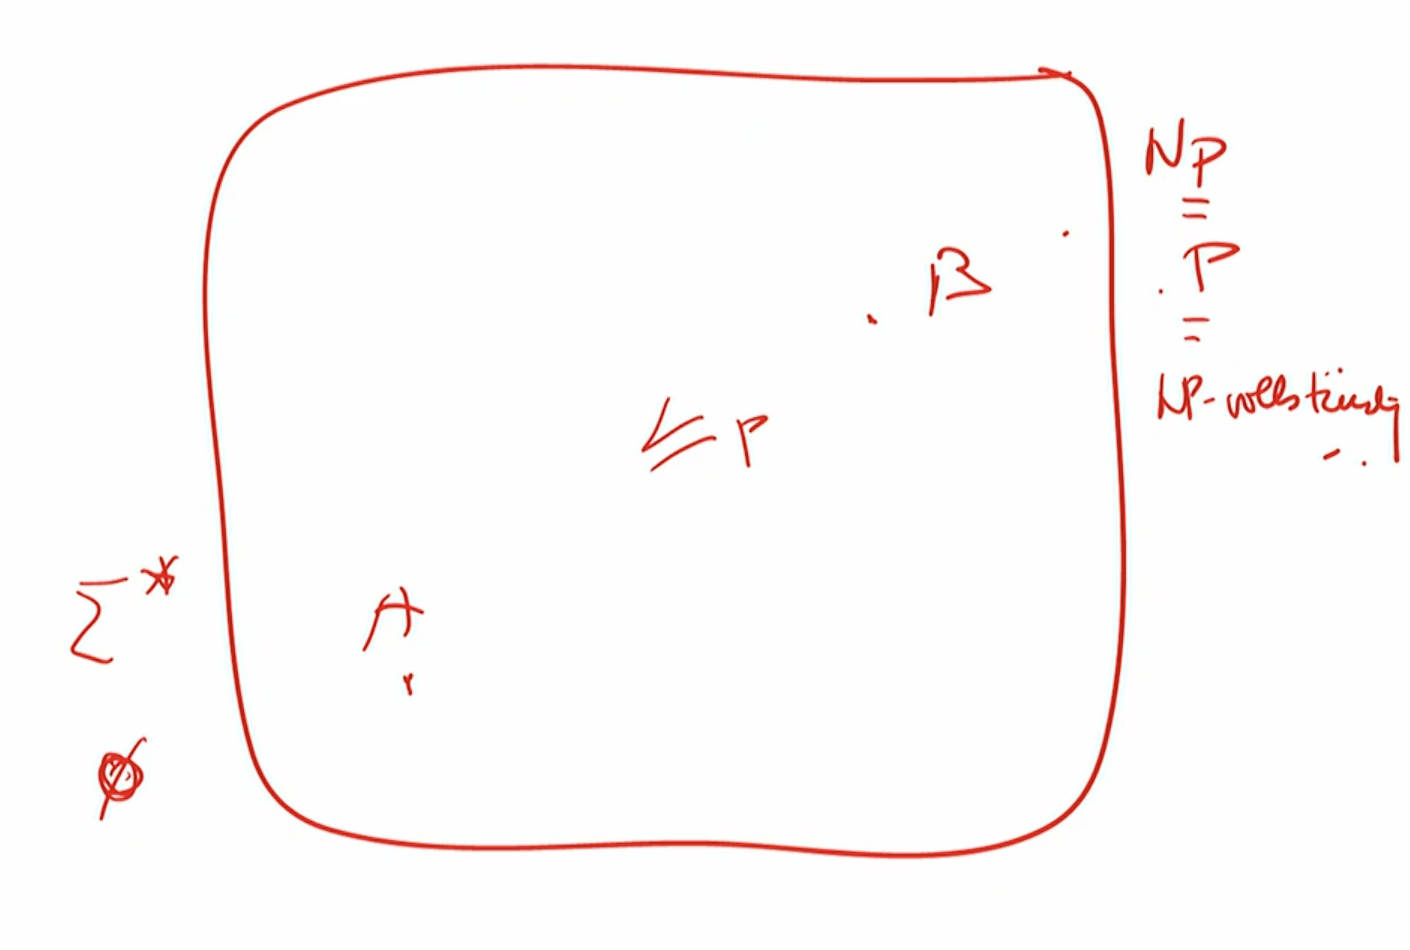 NP
=
P
=
NP-vollständig
B
≤p
A
Σ*
∅